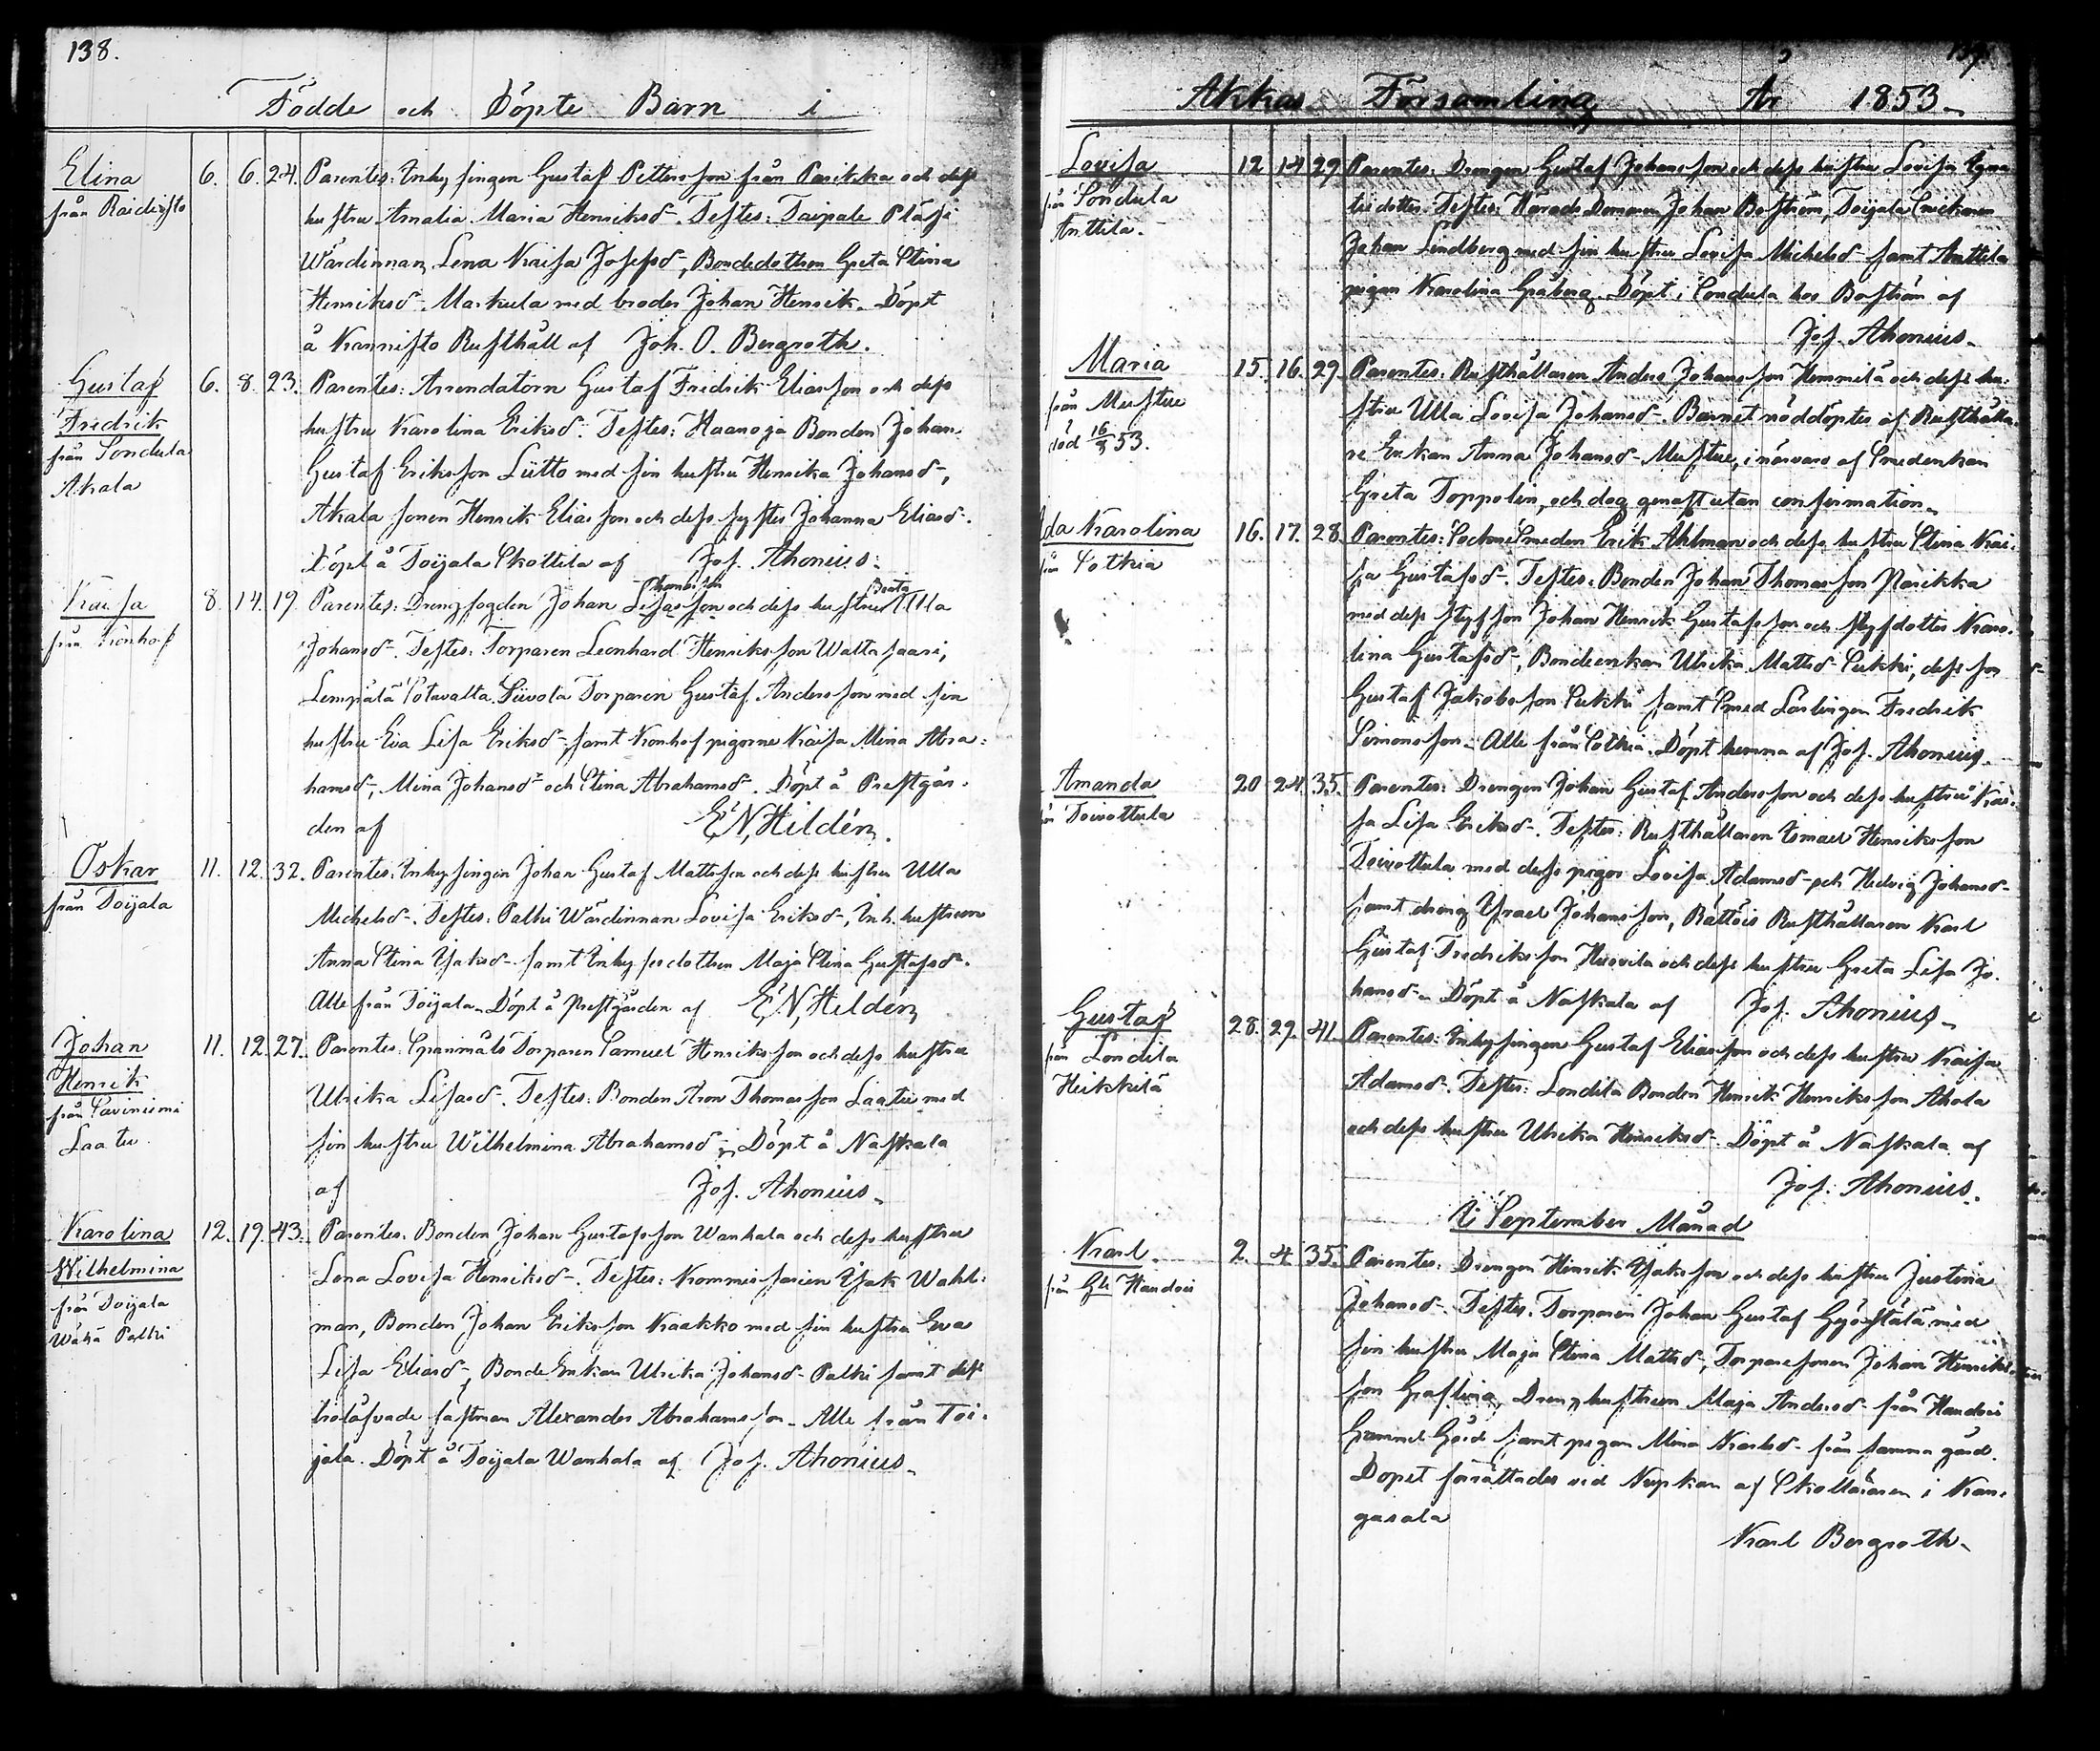 138.
Födde och Döpte Barn i
Elina 6. 6. 24. Parentes: Inhysingen Gustaf Pettersson från Parikka och dess
från Raidiisto hustru Amalia Maria Henriksd. Testes: Taipale Pläsi
Wärdinnan Lena Kaisa Josefsd, Bondedottren Greta Stina
Henriksd. Markula med broder Johan Henrik. Döpt
å Kannisto Rusthåll af Joh. O. Bergroth.
Gustaf 6. 8. 23. Parentes: Arrendatorn Gustaf Fredrik Eliasson och dess
Fredrik hustru Karolina Eriksd. Testes: Haanoja Bonden Johan
från Sondula Gustaf Eriksson Liitto med sin hustru Henrika Johansd,
Akala Akala sonen Henrik Eliasson och dess syster Johanna Eliasd.
Döpt å Toijala Skottila af Jos. Ahonius.
Kaisa 8. 14. 19. Parentes: Drengfogden Johan Lisasson och dess hustru Beata Ulla
från Kronhof Johansd. Testes: Torparen Leonhard Henriksson Waltasaari,
Lempälä Sotavalta Siivola Torparen Gustaf Andersson med sin
hustru Eva Lisa Eriksd, samt Kronhof pigorne Kaisa Mina Abra-
hamsd, Mina Johansd och Stina Abrahamsd. Döpt å Prestgår-
den af E. N. Hildén.
Oskar 11. 12. 32. Parentes: Inhysingen Johan Gustaf Mattsson och dess hustru Ulla
från Toijala Michelsd. Testes: Palki Wärdinnan Lovisa Eriksd, Inh. hustrun
Anna Stina Isaksd samt Inhyses dottren Maja Stina Gustafsd.
Alle från Toijala. Döpt å Prestgården af E. N. Hildén
Johan 11. 12. 27. Parentes: Spanmåls Torparen Samuel Henriksson och dess hustru
Henrik Ulrika Lisasd. Testes: Bonden Aron Thomasson Laatu med
från Saviniemi sin hustru Wilhelmina Abrahamsd. Döpt å Naskala
Laatu af Jos. Ahonius.
Karolina 12. 19. 43. Parentes: Bonden Johan Gustafsson Wanhala och dess hustru
Wilhelmina Lena Lovisa Henriksd. Testes: Kommissarien Isak Wahl-
från Toijala man, Bonden Johan Eriksson Kaakko med sin hustru Eva
Wähä Palki Lisa Eliasd, Bonde Enkan Ulrika Johansd Palki samt dess
trolåfvade fästman Alexander Abrahamsson. Alle från Toi-
jala. Döpt å Toijala Wanhala af Jos. Ahonius.
Akkas Församling År 1853.
Lovisa 12 14 29 Parentes: Drengen Gustaf Johansson och dess hustru Lovisa
från Sondula Testes: Härads Domaren Johan Boström, Toijala Snickaren
Anttila. Johan Lindberg med sin hustru Lovisa Michelsd samt Anttila
pigan Karolina Gråberg. Döpt i Sondula hos Boström af
Jos. Ahonius.
Maria 15. 16. 29. Parentes: Rusthållaren Anders Johansson Hemmilä och dess hu-
från Mustue stru Ulla Lovisa Johansd. Barnet nöddöptes af Rusthålla-
död 16/8 53. re Enkan Anna Johansd Mustue, i närvaro af Smedenkan
Greta Toppelin, och dog genast utan confirmation.
Ida Karolina 16. 17. 28. Parentes: Sockne Smeden Erik Ahlman och dess hustru Stina Kai-
från Sotkia sa Gustafsd. Testes: Bonden Johan Thomasson Parikka
med dess styfson Johan Henrik Gustafsson och styfdotter Karo-
lina Gustafsd, Bondeenkan Ulrika Mattsd Sukki, dess son
Gustaf Jakobsson Sukki samt Smed Lärlingen Fredrik
Simonsson. Alle från Sotkia. Döpt hemma af Jos. Ahonius.
Amanda 20 24. 35. Parentes: Drengen Johan Gustaf Andersson och dess hustru Kai-
Toivottula sa Lisa Eriksd. Testes: Rusthållaren Ismael Henriksson
Toivottula med dess pigor Lovisa Adamsd och Hedvig Johansd
samt dräng Israel Johansson, Rättöis Rusthållaren Karl
Gustaf Fredriksson Huovila och dess hustru Greta Lisa Jo-
hansd. Döpt å Naskala af Jos. Ahonius.
Gustaf 28. 29. 41. Parentes: Inhysingen Gustaf Eliasson och dess hustru Kaisa
från Londila Adamsd. Testes: Londila Bonden Henrik Henriksson Ahola
Heikkilä och dess hustru Ulrika Henriksd. Döpt å Naskala af
Jos. Ahonius.
I September Månad
Karl 2. 4. 35. Parentes: Drengen Henrik Isaksson och dess hustru Justina
från Handois Johansd. Testes: Torparen Johan Gustaf med
sin hustru Maja Stina Mattsd, Torparesonen Johan Henriks-
son Drenghustrun Maja Andersd från Handois
Gammel Gård samt pigan Mina Karlsd från samma gård.
Dopet förrättades vid Kyrkan af Skolläraren i Kan-
gasala
Karl Bergroth.